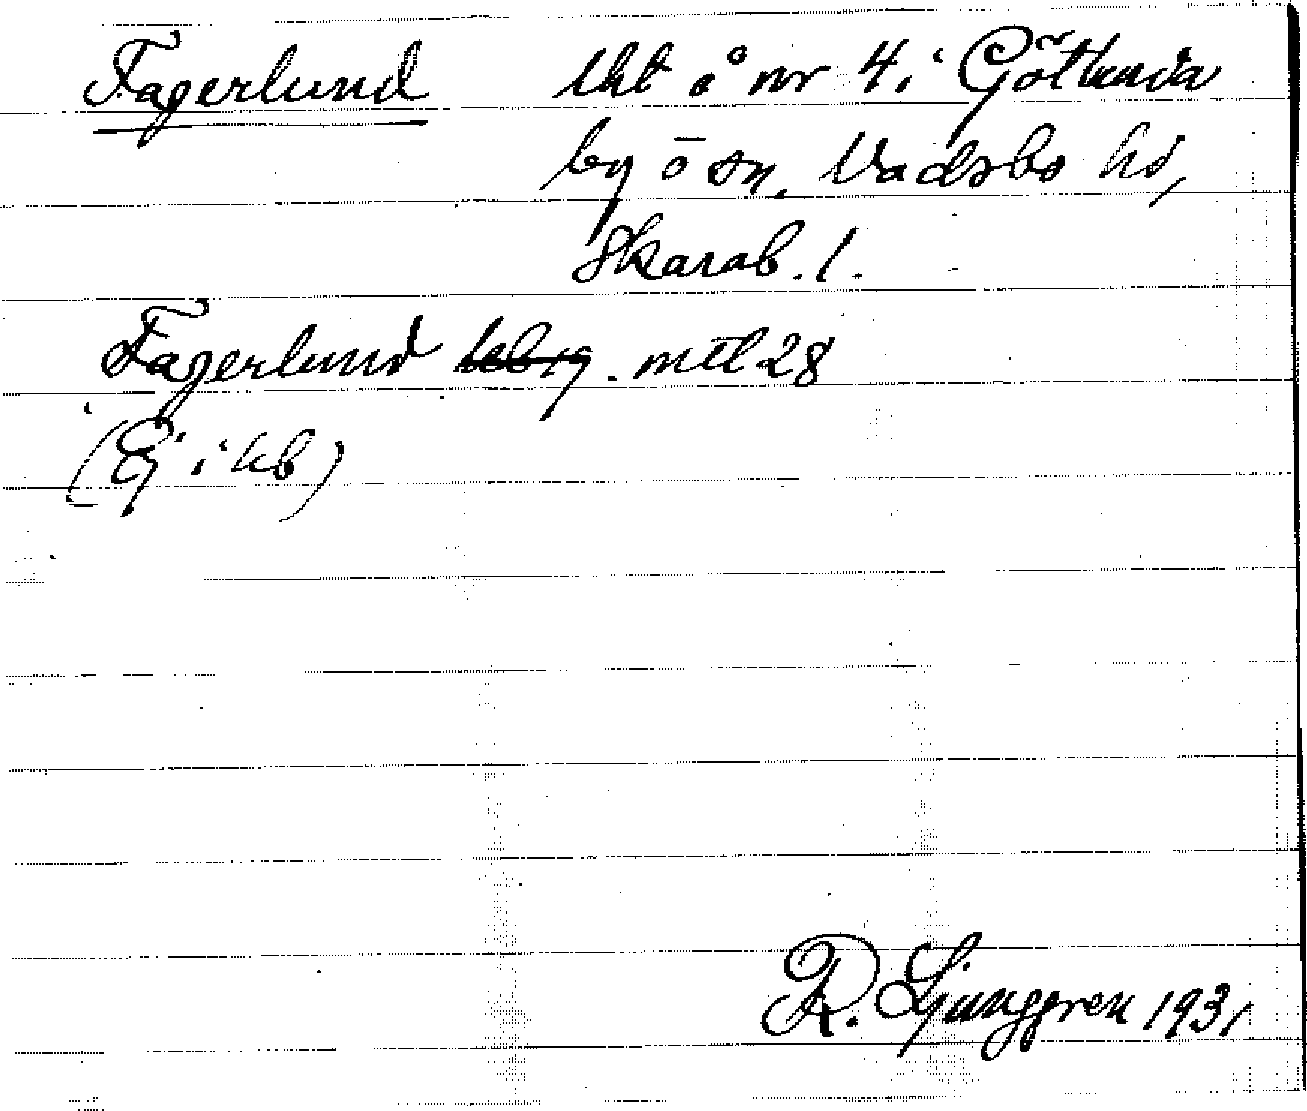 Fagerlund lht å nr 4 i Götlunda
by o sn, Vadsbo hd,
Skarab. l.
Fagerlund mtl 28
(Ej i kb)
R. Ljunggren 1931